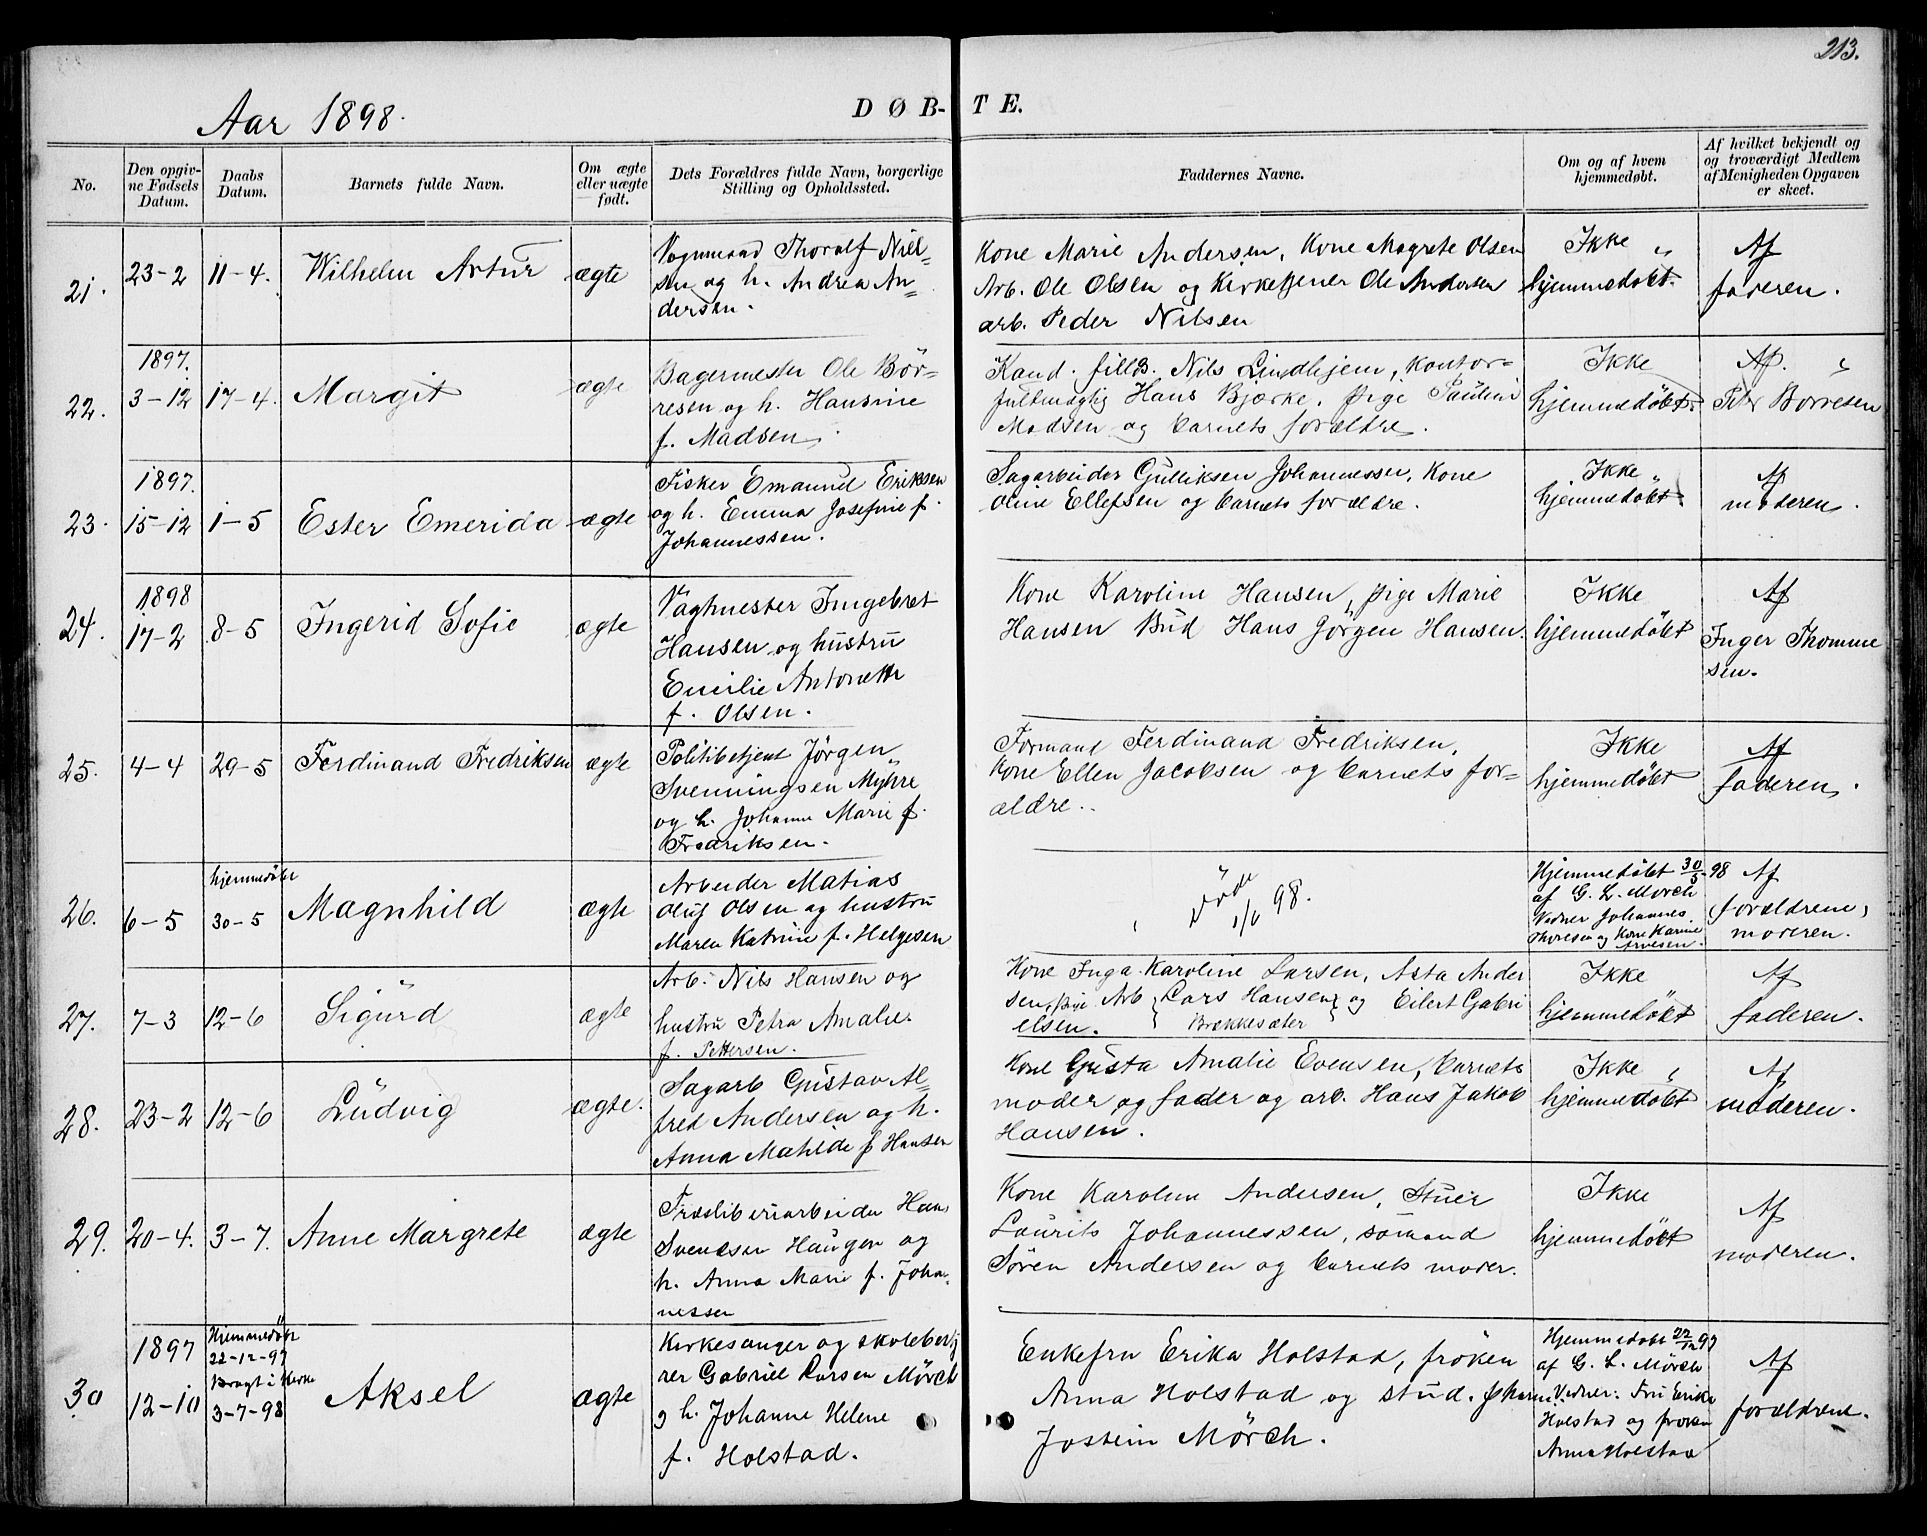 213.
Aar 1898.
DØB- TE.
No.
Den opgiv-
ne Fødsels
Datum.
Daabs
Datum.
Barnets fulde Navn.
Om ægte
eller uægte
født.
Dets Forældres fulde Navn, borgerlige
Stilling og Opholdssted.
Faddernes Navne.
Om og af hvem
hjemmedøbt.
Af hvilket bekjendt og
og troværdigt Medlem
af Menigheden Opgaven
er skeet.
21.
23-2
11-4.
Wilhelm Artur
ægte
Vognmand Thoralf Niel-
sen og h. Andrea An-
dersen.
Kone Marie Andersen, Kone Magrete Olsen
Arb. Ole Olsen og Kirketjener Ole Andersen
arb. Peder Nilsen
Ikke
hjemmedøbt.
Af
faderen.
22.
1897.
3-12
17-4.
Margit
ægte
Bagermester Ole Bör-
resen og h. Hansine
f. Madsen.
Kand. fill. Nils Lindhjem, Kontor-
fuldmægtig Hans Bjerke, Pige Pauline
Madsen og barnets forældre.
Ikke
hjemmedøbt.
Af.
Peter Borresen
23.
1897.
15-12
1-5
Ester Emerida
ægte
Fisker Emanuel Eriksen
og h. Emma Josefine f.
Johannessen.
Sagarbeider Gulliksen Johannessen, Kone
Oline Ellefsen og barnets forældre.
Ikke
hjemmedøbt.
Af
moderen.
24.
1898
17-2
8-5
Ingerid Sofie
ægte
Vagtmester Ingebret
Hansen og hustru
Emilie Antonette
f. Olsen.
Kone Karoline Hansen, pige Marie
Hansen Bud Hans Jörgen Hansen.
Ikke
hjemmedøbt
Af
Inger Thomme
sen.
25.
4-4
29-5
Ferdinand Fredriksen
ægte
Politibetjent Jörgen
Svenningsen Myhre
og h. Johanne Marie f.
Fredriksen.
Formand Ferdinand Fredriksen,
Kone Ellen Jacobsen og barnets for-
ældre.
Ikke
hjemmedøbt
Af
faderen.
26.
6-5
hjemmedøbt
30-5
Magnhild
ægte
Arbeider Matias
Oluf Olsen og hustru
Maren Katrine f. Helgesen
Døde
1/6 98.
Hjemmedøbt 30/5-98
af G. L. Mörch
Vidner Johannes
Thoresen og Kone Karine
Af
forældrene,
moderen.
27.
7-3
12-6
Sigurd
ægte
Arb. Nils Hansen og
hustru Petra Amalie
f. Pettersen.
Kone Inga Karoline Larsen, Asta Ander
sen, pige Arb {Lars Hansen} og Eilert Gabri
elsen. Brekkesæter
Ikke
hjemmedøbt
Af
faderen.
28.
23-2
12-6
Ludvig
ægte.
Sagarb Gustav Al-
fred Andersen og h.
Anna Mathilde f Hansen
Kone Gusta Amalie Evensen, barnets
moder og fader og arb. Hans Jakob
Hansen.
Ikke
hjemmedøbt
Af
moderen.
29.
20-4.
3-7.
Anne Margrete
ægte
Træsliberiarbeider Hans
Svendsen Haugen og
h. Anna Marie f. Joha-
nessen
Kone Karoline Andersen, Stuer
Laurits Johannessen, sömand
Sören Andersen og barnets moder.
Ikke
hjemmedøbt
Af
moderen.
30
1897
12-10
Hjemmedøbt
22-12-97
Bragt i Kirke
3-7-98
Aksel
ægte
Kirkesanger og skolebesty
rer Gabriel Larsen Mörch
og h. Johanne Helene
f. Holstad.
Enkefru Erika Holstad, fröken
Anna Holstad og stud.
Jostein Mörch.
Hjemmedøbt 22/12 97
af G. L. Mörch
Vidner: Fru Erika
Holstad og fröken
Anna Holstad
Af
forældrene.